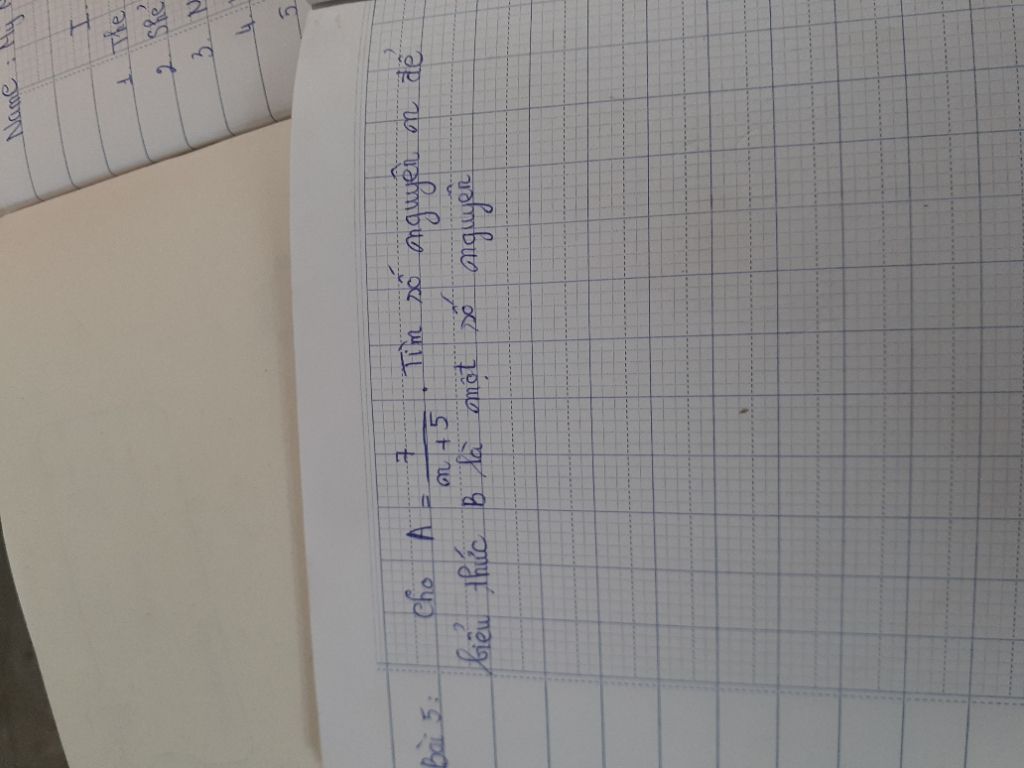 Name:
I.
1. The
2 Shé
3. N
4.
5.
Bài 5: Cho A = 7/(n+5). Tìm số nguyên n để
biểu thức B là một số nguyên